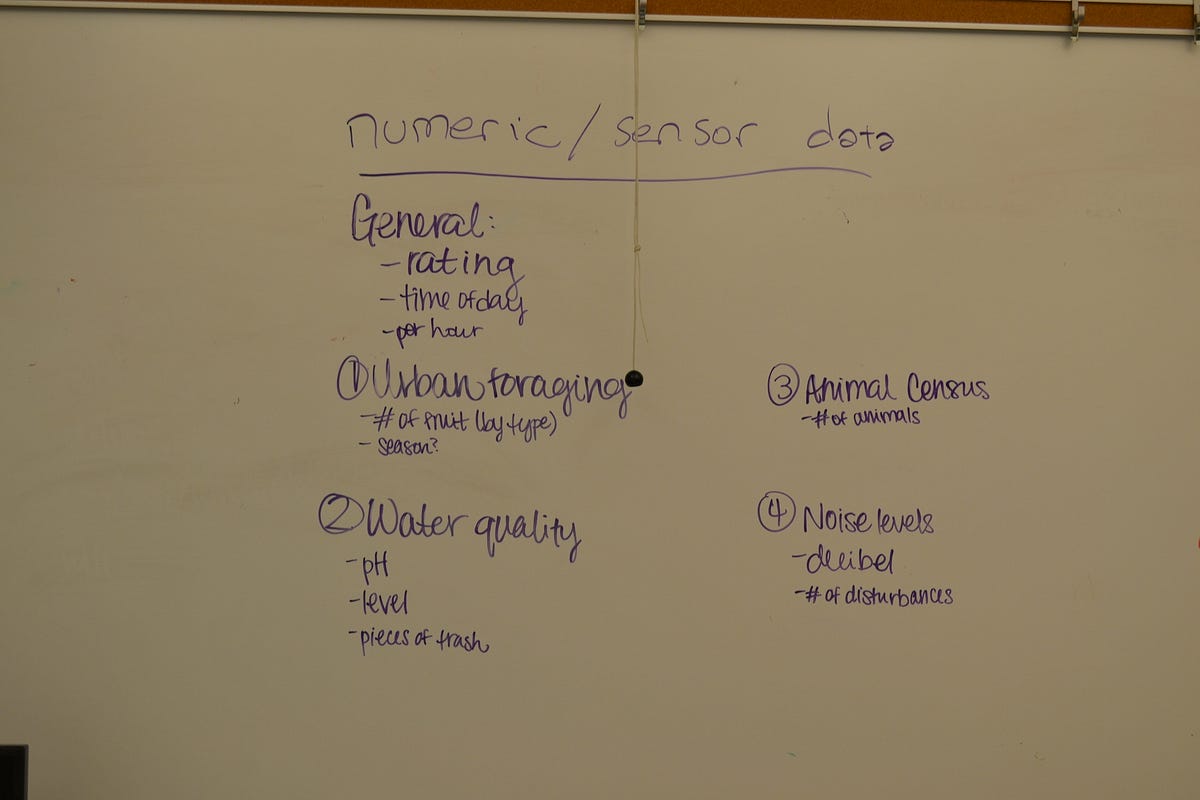 numeric/sensor data
General:
- rating
- time of day
- per hour
① Urban foraging
- # of fruit (by type)
- season?
② Water quality
- pH
- level
- pieces of trash
③ Animal Census
- # of animals
④ Noise levels
- decibel
- # of disturbances